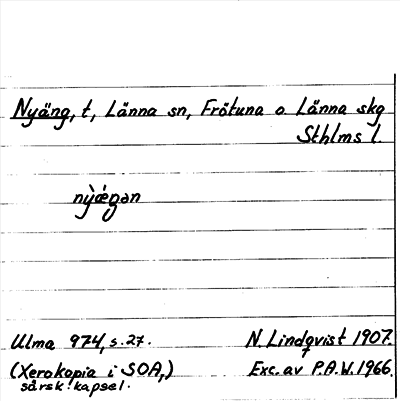 Nyäng, t, Länna sn, Frötuna o. Länna skg
Sthlms l.
nỳǽgən
Ulma 974, s. 27. N. Lindqvist 1907.
(Xerokopia i SOA,) Exc. av P.A.W. 1966.
särsk. kapsel.